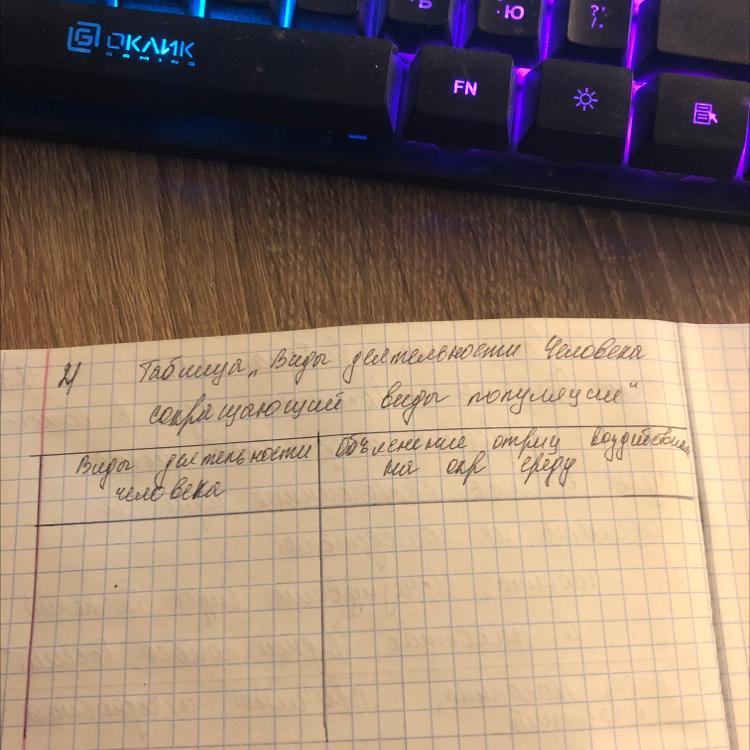 Ь
Ю
?!.
ОКЛИК
GAMING
FN
2) Таблица „Виды деятельности Человека
сокращающий виды популяции“
Виды деятельности
человека
Объеснение отриц воздействия
на окр среду